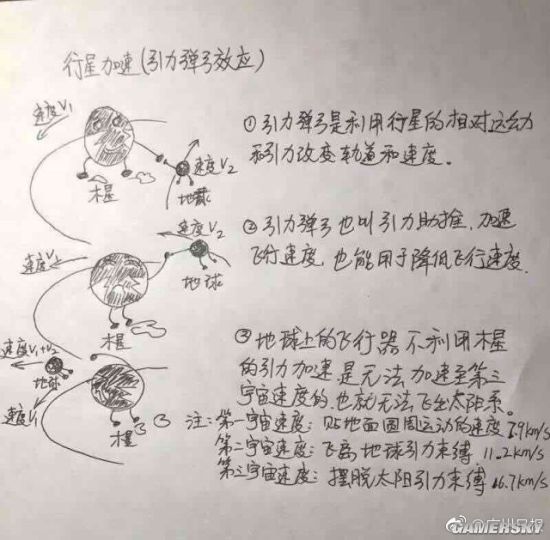 行星加速(引力弹弓效应)
速度V1
木星
速度V2
地球
①引力弹弓是利用行星的相对运动
和引力改变轨道和速度。
速度V1
木星
速度V2
地球
②引力弹弓也叫引力助推,加速
飞行速度,也能用于降低飞行速度.
速度V1+V2
地球
速度V1
木星
③地球上的飞行器不利用木星
的引力加速是无法加速至第三
宇宙速度的,也就无法飞出太阳系。
注:第一宇宙速度:贴地面圆周运动的速度7.9km/s
第二宇宙速度:飞离地球引力束缚 11.2km/s
第三宇宙速度:摆脱太阳引力束缚 16.7km/s
@广州日报
GAMERSKY